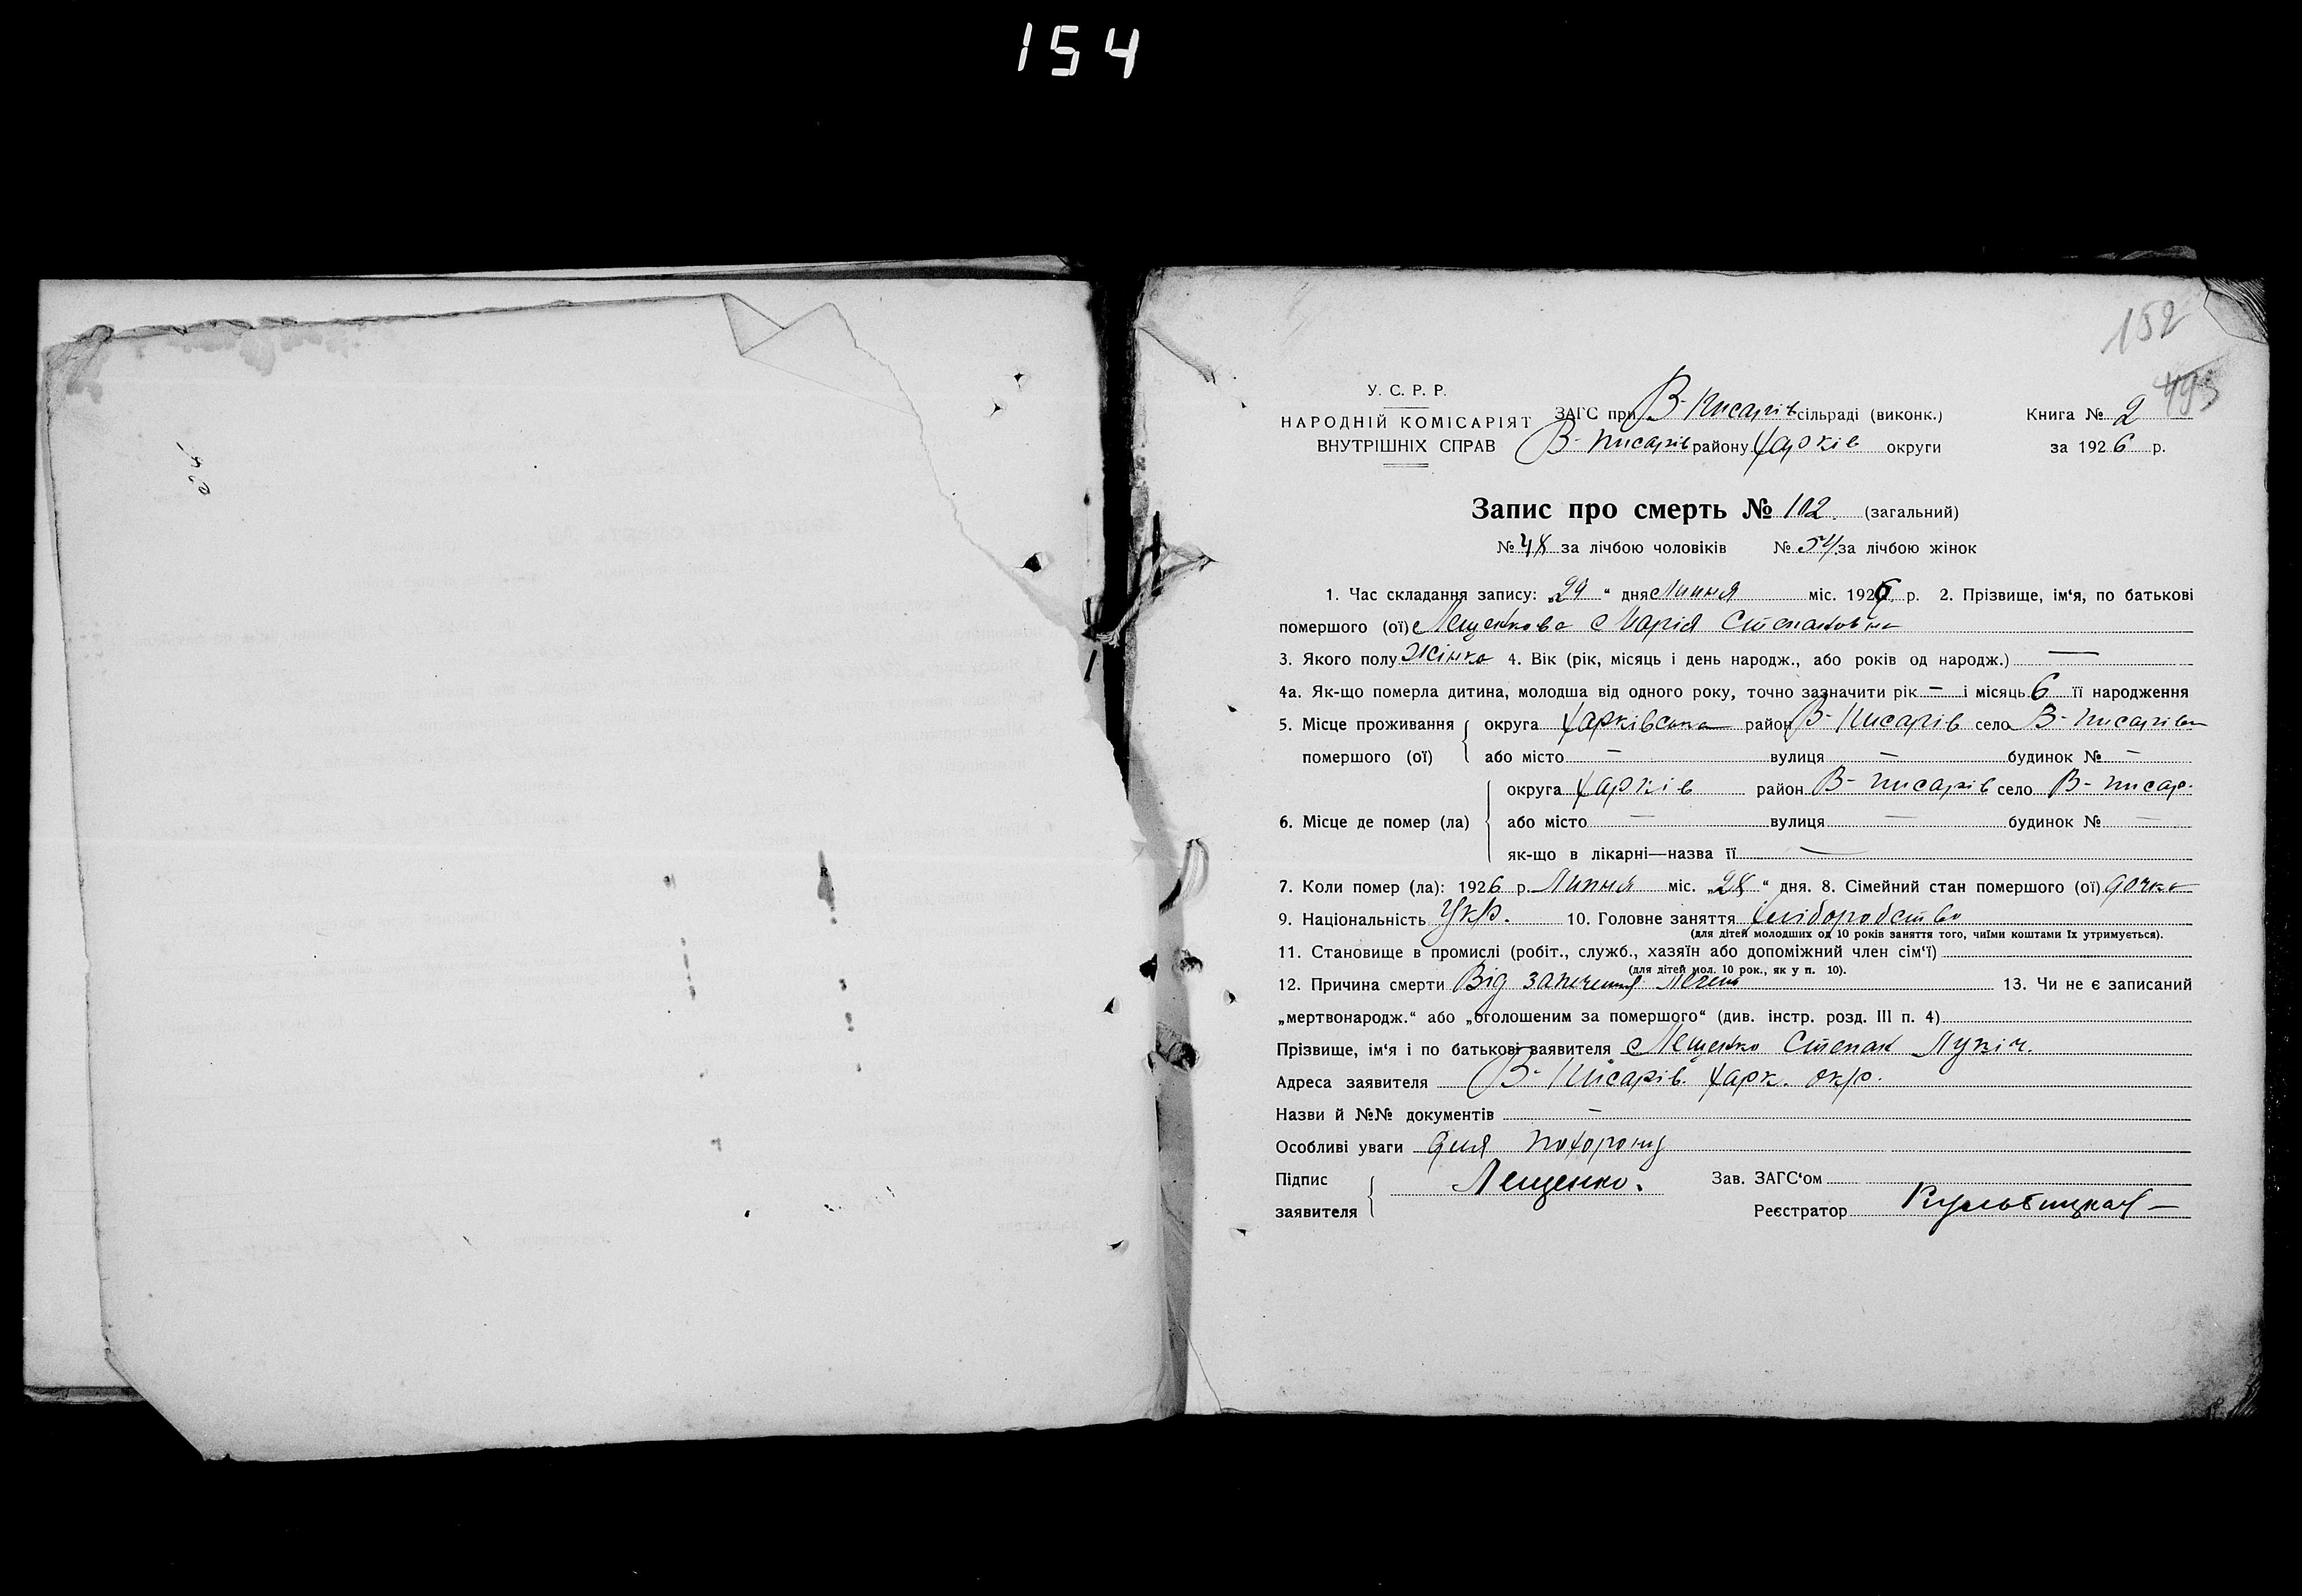 154
152
493
У. С. Р. Р.
НАРОДНІЙ КОМІСАРІЯТ
ВНУТРІШНІХ СПРАВ
ЗАГС при В-Писарів сільраді (виконк.) Книга № 2
В-Писарів району Харків округи за 1926 р.
Запис про смерть № 102 (загальний)
№ 48 за лічбою чоловіків № 54 за лічбою жінок
1. Час складання запису: „29“ дня Липня міс. 1926 р. 2. Прізвище, ім‘я, по батькові
помершого (ої) Лещенкова Марія Степановна
3. Якого полу Жінка 4. Вік (рік, місяць і день народж., або років од народж.) —
4а. Як-що померла дитина, молодша від одного року, точно зазначити рік — і місяць 6 її народження
5. Місце проживання помершого (ої) округа Харківська район В-Писарів село В-Писарівка
або місто — вулиця — будинок № —
6. Місце де помер (ла) округа Харків район В-Писарів село В-Писар.
або місто — вулиця — будинок № —
як-що в лікарні—назва її —
7. Коли помер (ла): 1926 р. Липня міс. „28“ дня. 8. Сімейний стан помершого (ої) дочка
9. Національність Укр. 10. Головне заняття Хліборобство
(для дітей молодших од 10 років заняття того, чиїми коштами їх утримується).
11. Становище в промислі (робіт., служб., хазяїн або допоміжний член сім‘ї)
(для дітей мол. 10 рок., як у п. 10).
12. Причина смерти Від запечення легень 13. Чи не є записаний
„мертвонародж.“ або „оголошеним за помершого“ (див. інстр. розд. III п. 4)
Прізвище, ім‘я і по батькові заявителя Лещенко Степан Лукіч.
Адреса заявителя В-Писарів. Харк. окр.
Назви й №№ документів —
Особливі уваги для похорону
Підпис заявителя Лещенко. Зав. ЗАГС‘ом
Реєстратор